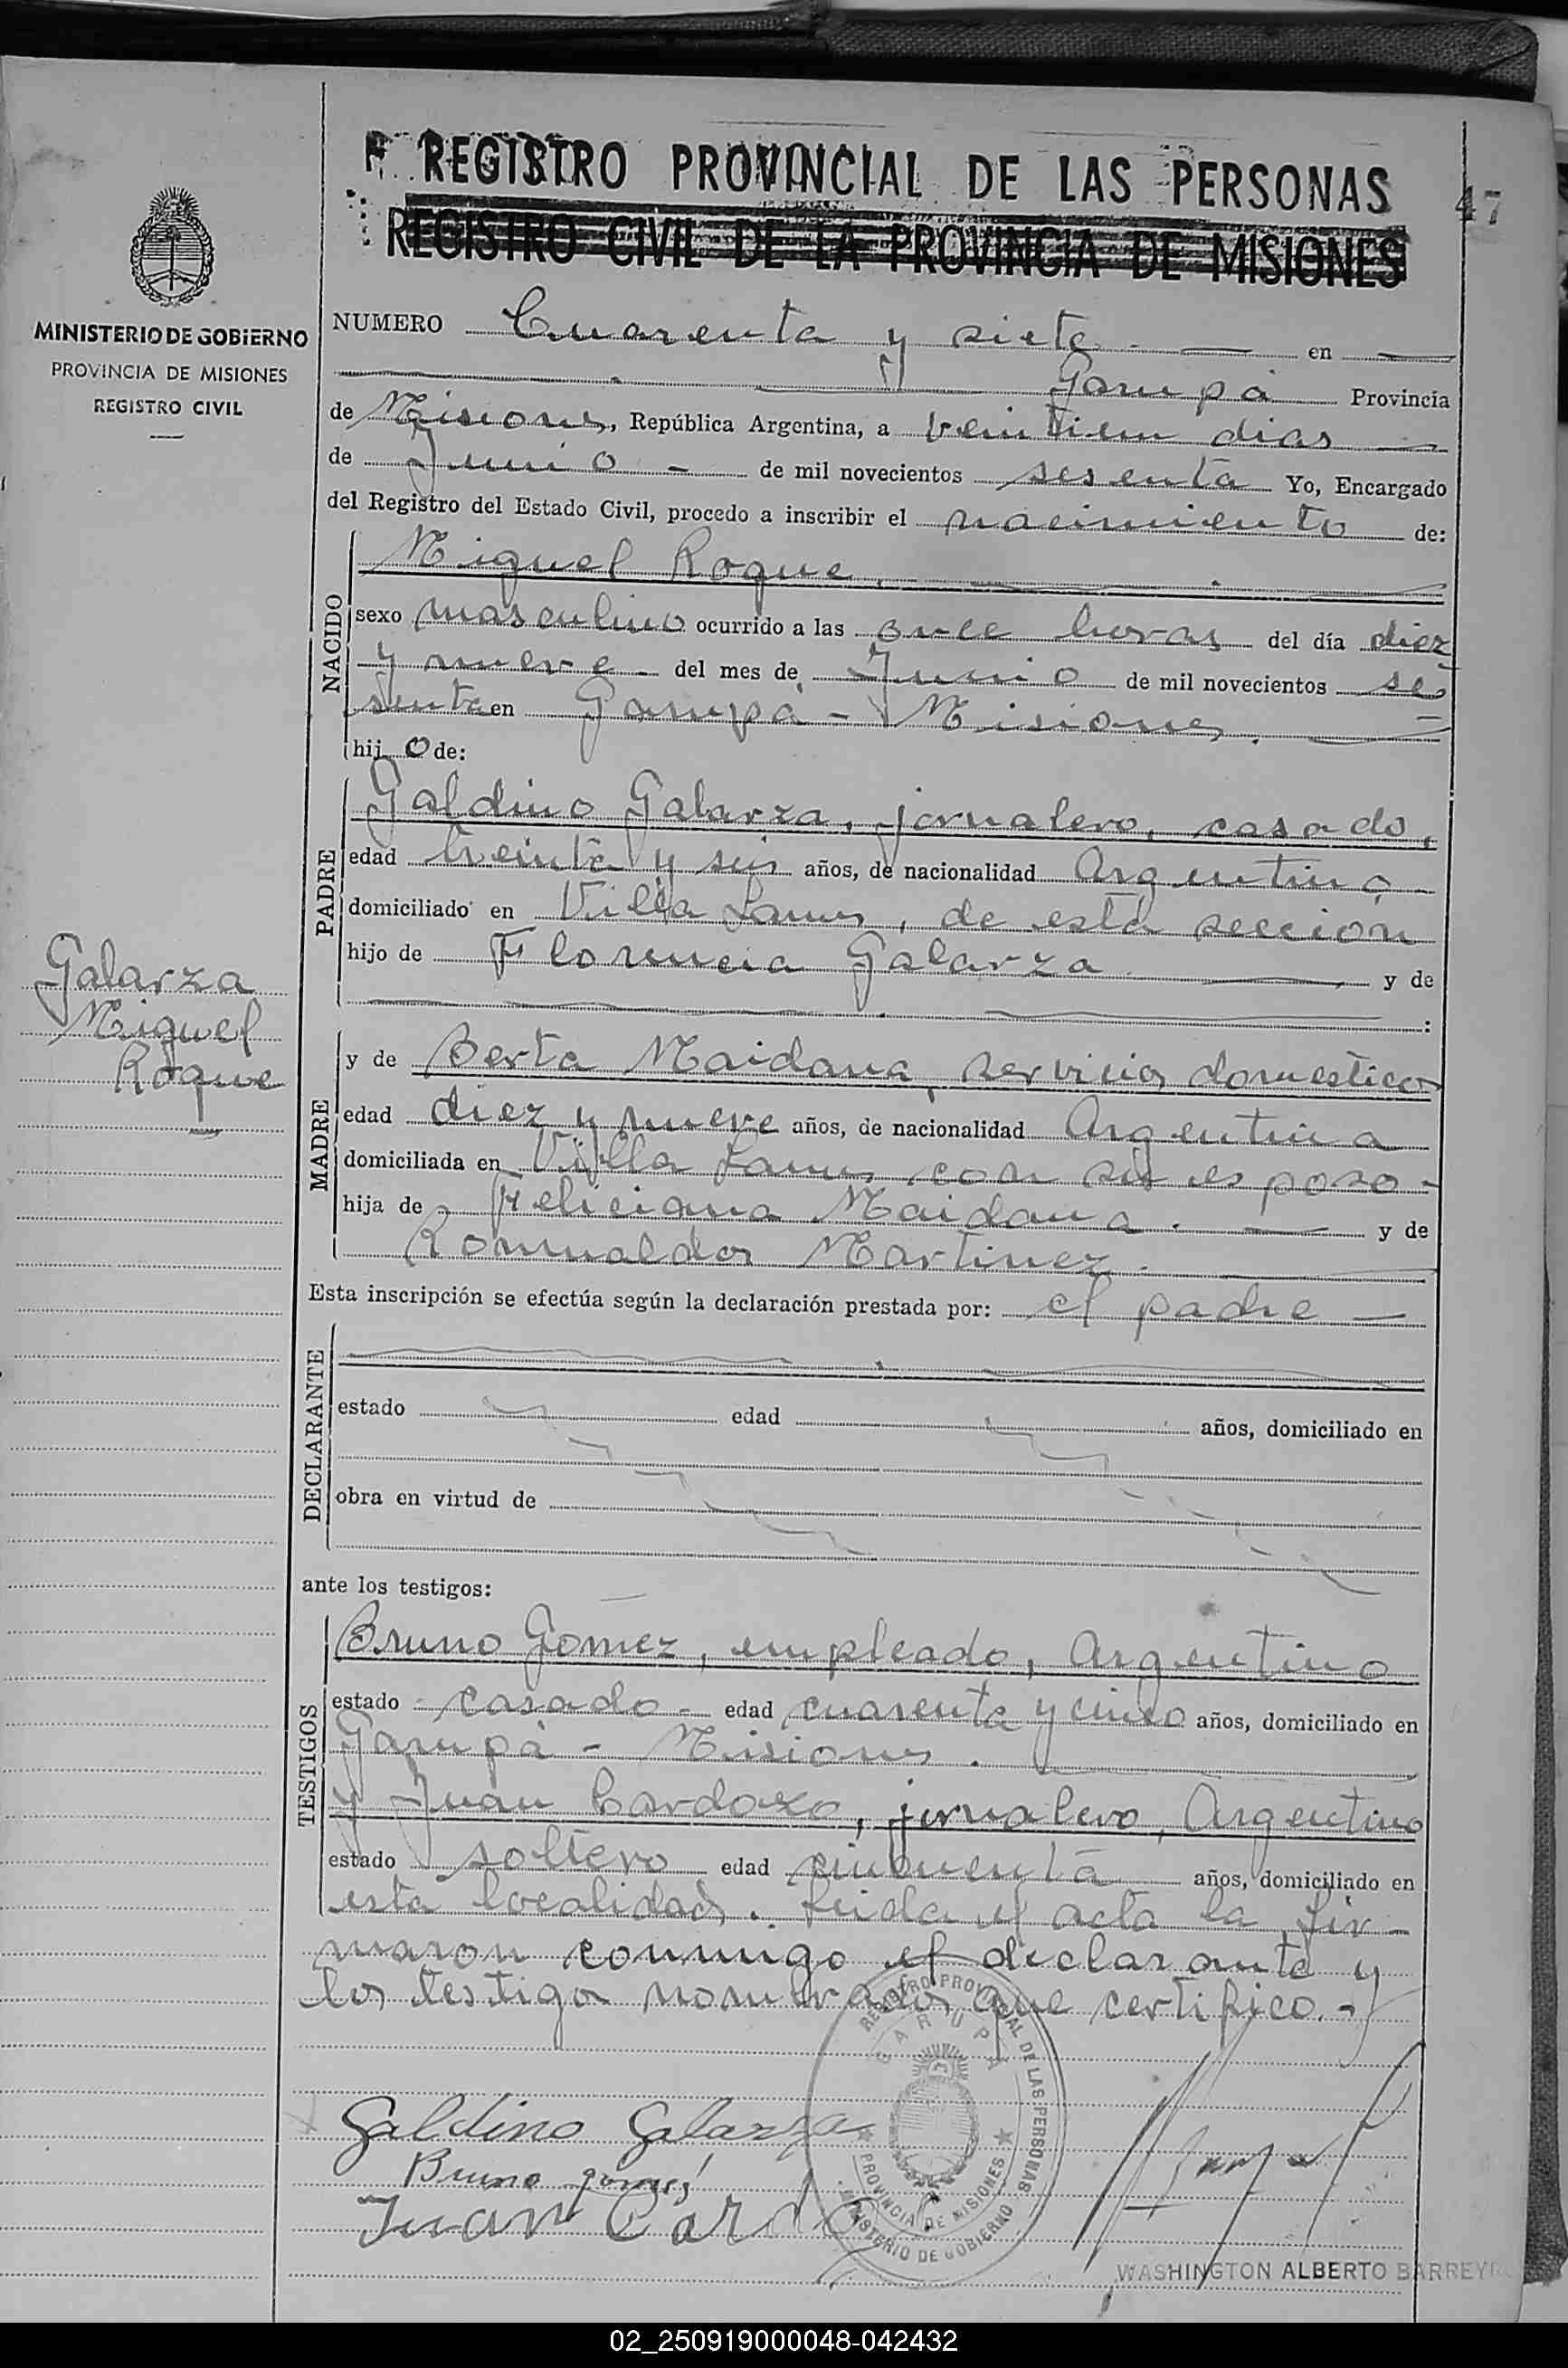 REGISTRO PROVINCIAL DE LAS PERSONAS
47
REGISTRO CIVIL DE LA PROVINCIA DE MISIONES
MINISTERIO DE GOBIERNO
PROVINCIA DE MISIONES
REGISTRO CIVIL
NUMERO Cuarenta y siete en
Garupá Provincia
de Misiones, República Argentina, a veintiun dias
de Junio de mil novecientos sesenta Yo, Encargado
del Registro del Estado Civil, procedo a inscribir el nacimiento de:
NACIDO
Miguel Roque.
sexo masculino ocurrido a las once horas del día diez
y nueve del mes de Junio de mil novecientos se
senta en Garupá - Misiones.
hijo de:
PADRE
Galdino Galarza, jornalero, casado,
edad treinta y seis años, de nacionalidad Argentino
domiciliado en Villa Lanus, de esta sección
hijo de Florencia Galarza y de
Galarza
Miguel
Roque
MADRE
y de Berta Maidana, servicios domesticos
edad diez y nueve años, de nacionalidad Argentina
domiciliada en Villa Lanus con su esposo -
hija de Feliciana Maidana. y de
Romualdo Martinez.
Esta inscripción se efectúa según la declaración prestada por: el padre
DECLARANTE
estado edad años, domiciliado en
obra en virtud de
ante los testigos:
TESTIGOS
Bruno Gómez, empleado, Argentino
estado casado - edad cuarenta y cinco años, domiciliado en
Garupá - Misiones.
y Juan Cardozo, jornalero, Argentino
estado soltero edad cincuenta años, domiciliado en
esta localidad. Leida el acta la fir-
maron conmigo el declarante y
los testigos nombrados que certifico.-
REGISTRO PROVINCIAL DE LAS PERSONAS
GARUPA
PROVINCIA DE MISIONES
MINISTERIO DE GOBIERNO
Galdino Galarza
Bruno gomes
Juan Cardo
WASHINGTON ALBERTO BARREYR
02_250919000048-042432